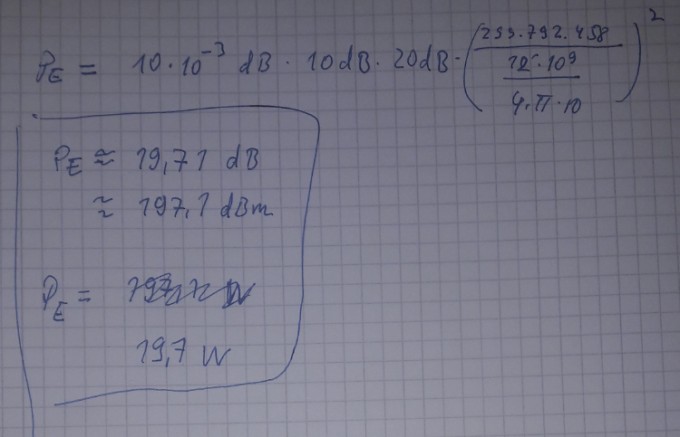 P_E = 10 · 10^-3 dB · 10 dB · 20 dB · ( 299.792.458 / 12 · 10^9 / 4 · π · 10 )^2
P_E ≈ 19,71 dB
≈ 197,1 dBm
P_E =
19,7 W